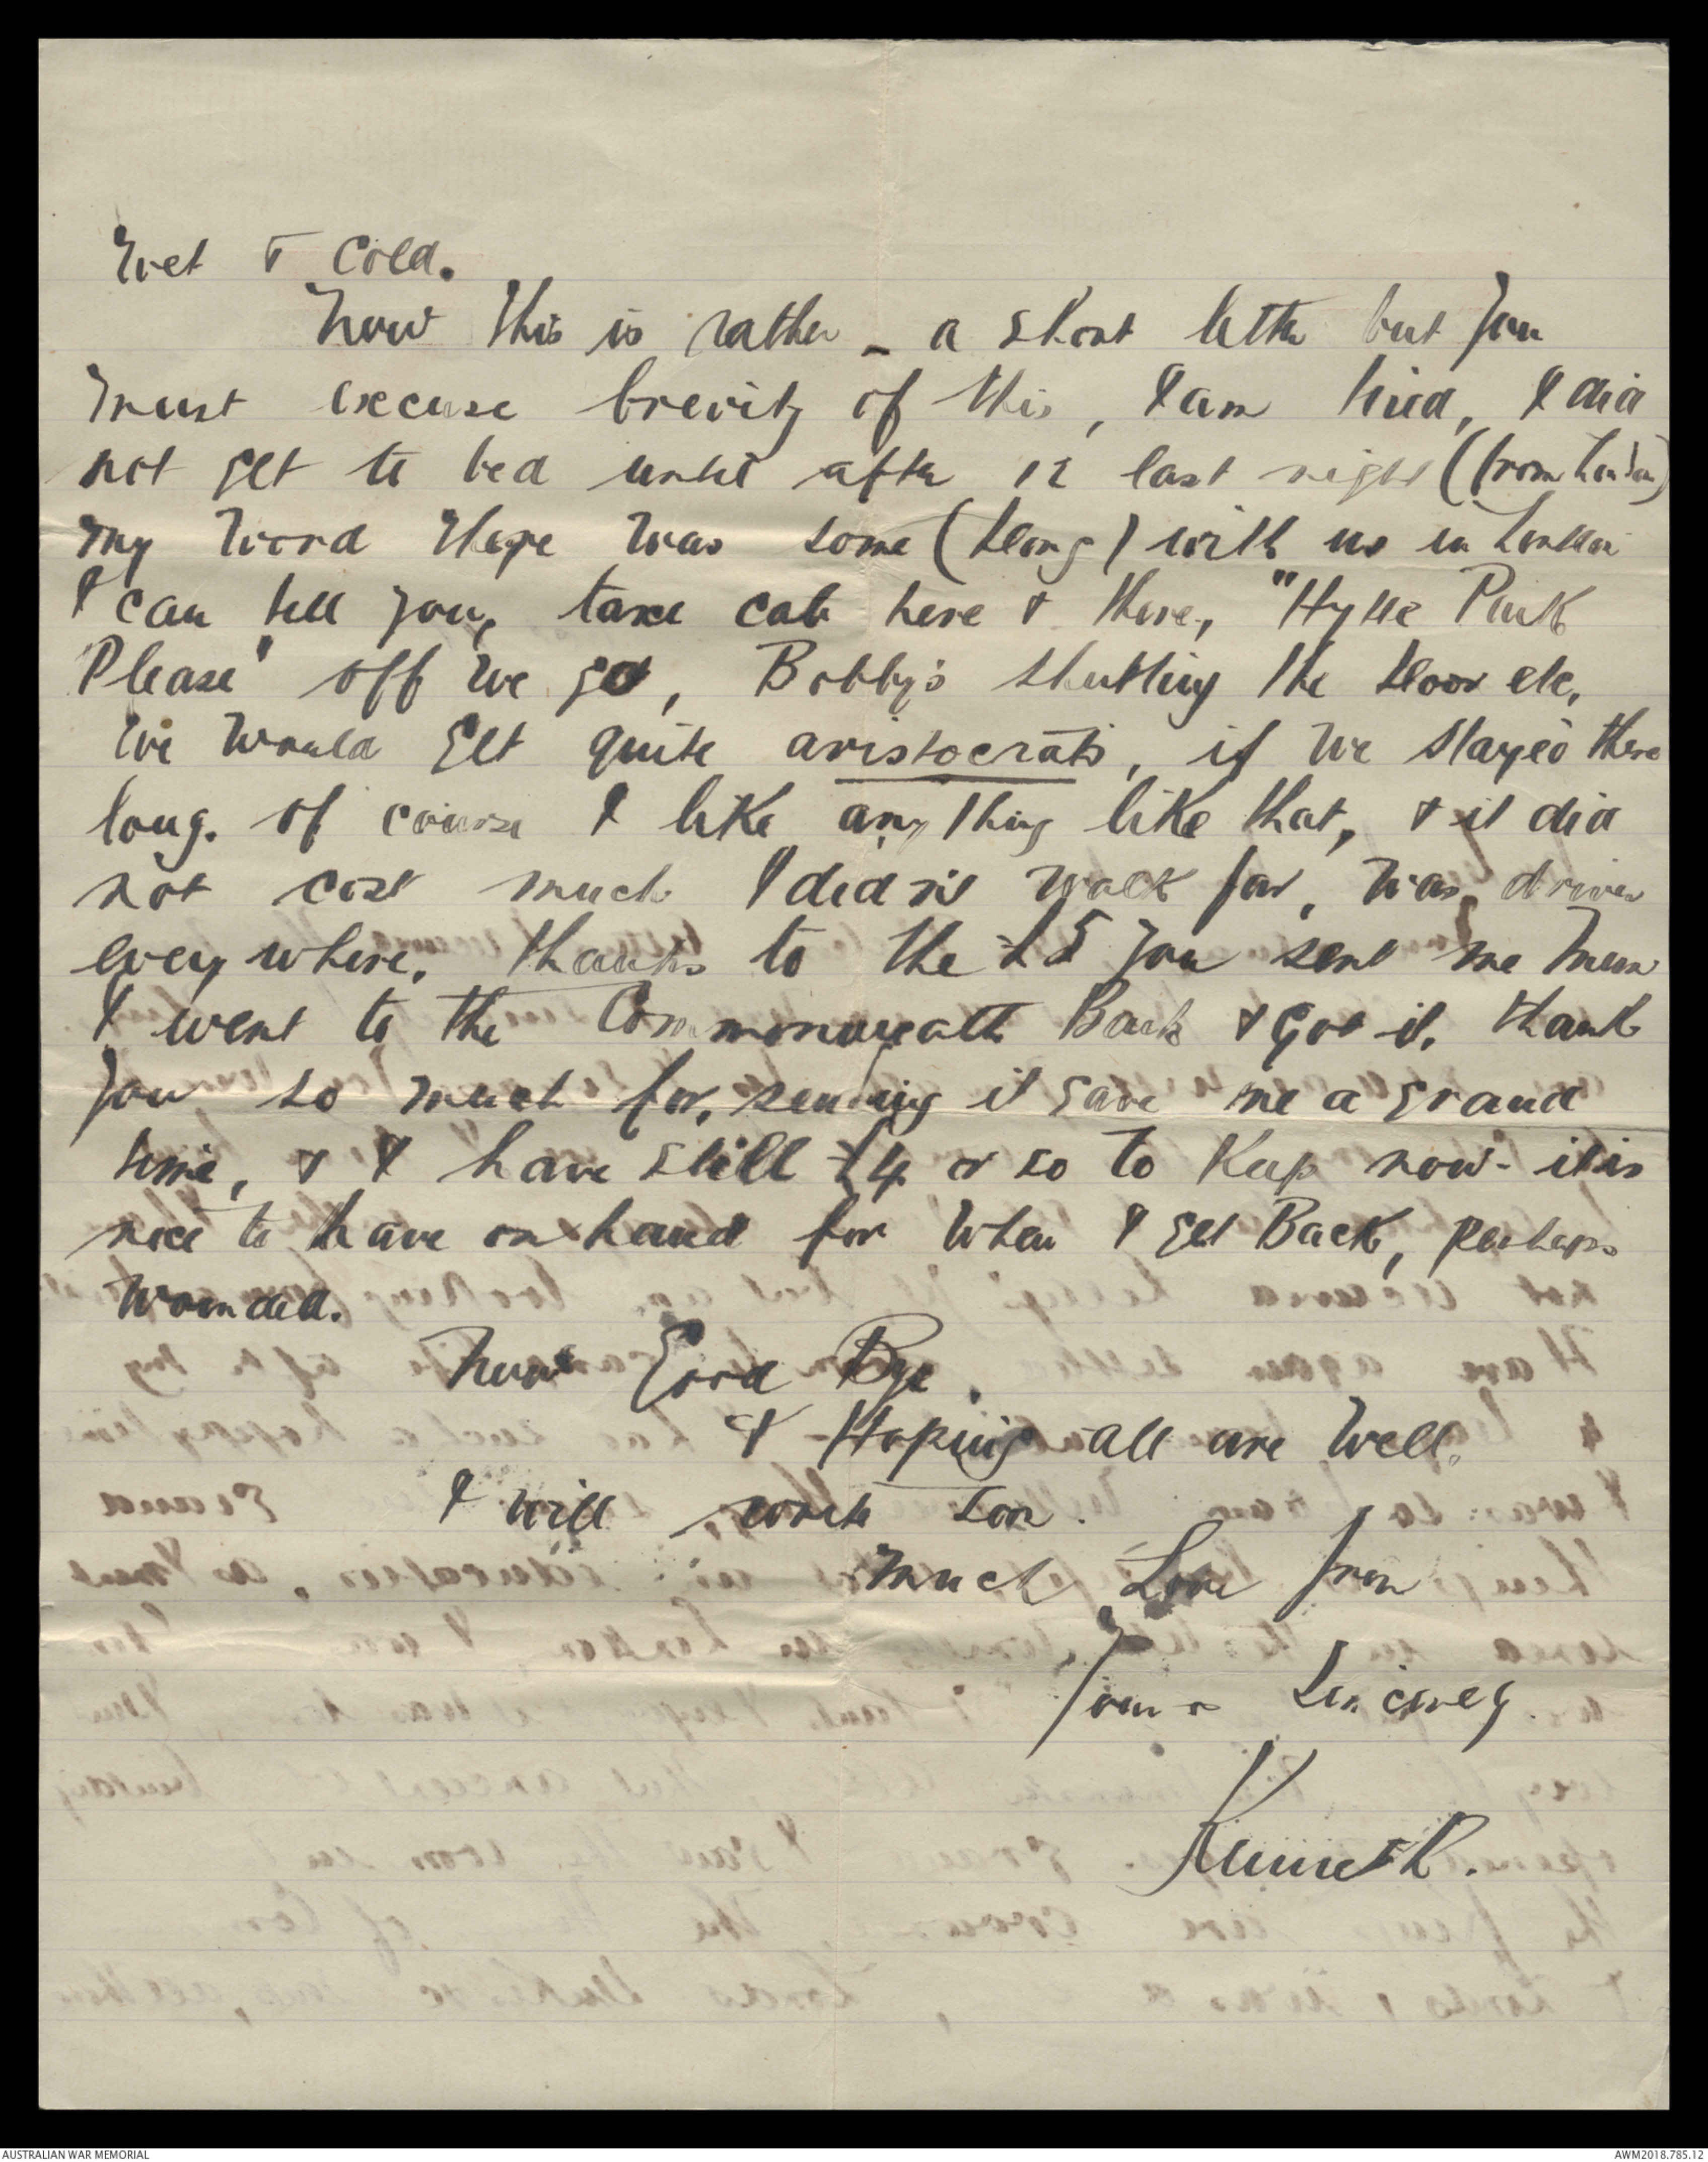 Wet & Cold.
Now this is rather - a short letter but you
must excuse brevity of this, I am tired, I did
not get to bed until after 12 last night (from London)
My word there was some (doing) with us in London
I can tell you, taxi cab here & there, "Hyde Park
Please" off we go, Bobby's shutting the door etc,
We would get quite aristocrats, if we stayed there
long. Of course I like any thing like that, & it did
not cost much I didn't walk far, was driven
every where. thanks to the £5 you sent me Mum
I went to the Commonwealth Bank & got it. thank
you so much for, sending it gave me a grand
time, & I have still £4 or so to keep now - it is
nice to have on hand for when I get Back, perhaps
wounded.
Now Good Bye.
& Hoping all are well.
I will write soon.
Much Love from
Yours Sincerely.
Kenneth.
AUSTRALIAN WAR MEMORIAL
AWM2018.785.12